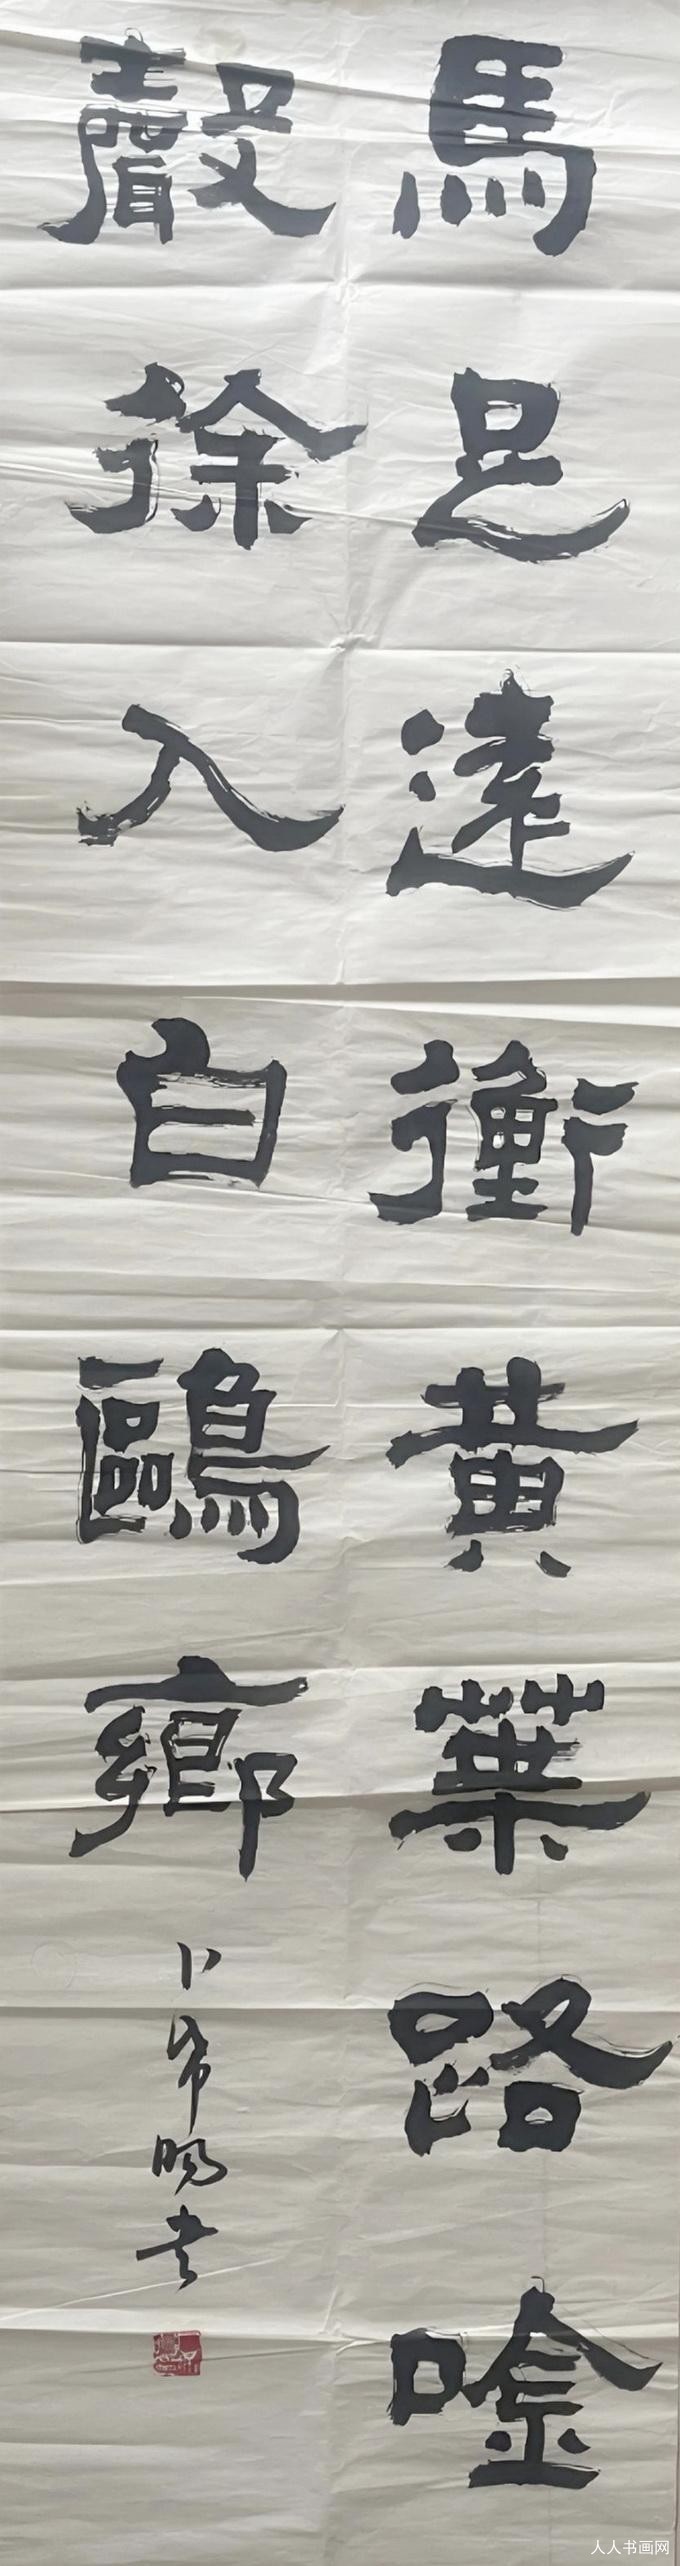 馬足遠衝黄葉路唫
聲徐入白鷗鄉
卜希暘书
人人书画网